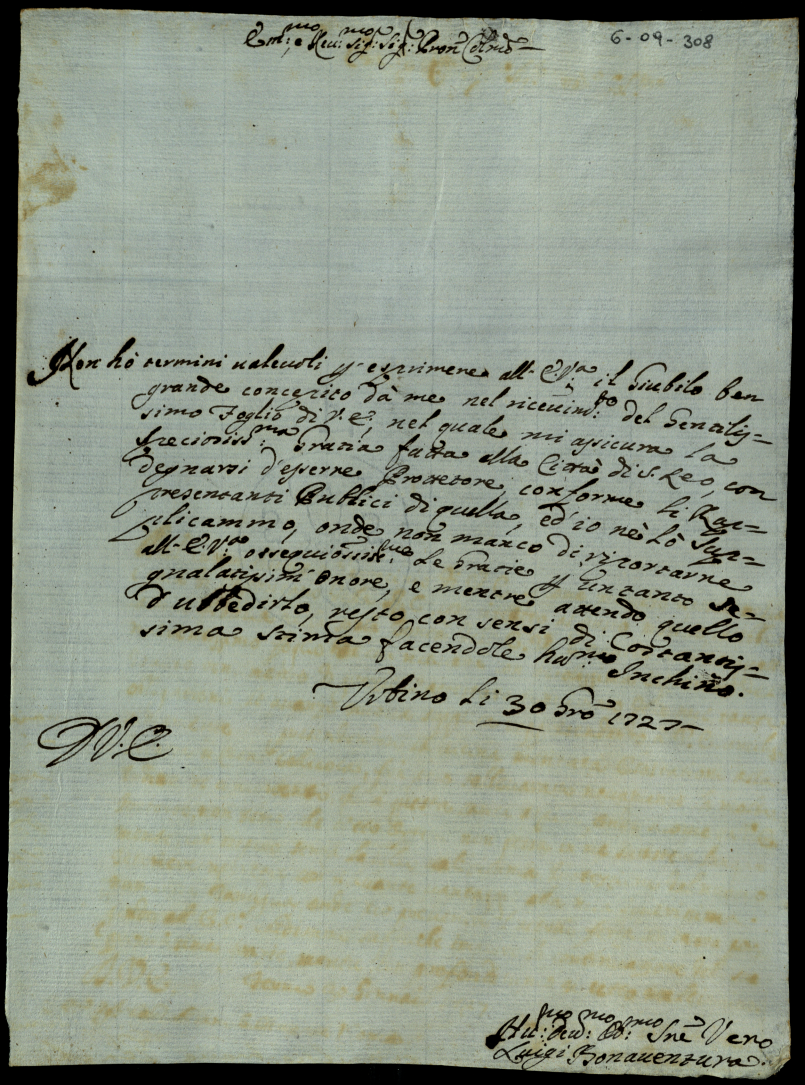 6-09-308
Em:mo e Rev:mo Sig: Sig: Pron Colmo
Non hò termini valevoli p esprimere all'E.Va il Giubilo ben
grande concepito dà me nel ricevim:to del Gentilis-
simo Foglio di V.E., nel quale mi assicura la
speciosiss:ma Grazia fatta alla Città di S. Leo, con
degnarsi d'esserne Protettore, conforme li Rap-
presentanti Publici di quella, ed' io nè lò sup-
plicammo, onde non manco di riportarne
all'E.Va ossequiosissime le Grazie p un tanto se-
gnalatissim' Onore, e mentre attendo quello
d'ubbedirlo, resto con sensi di Costantis-
sima stima facendole hum:mo Inchino.
Urbino li 30 Gro 1727
D V.E.
Hu:mo Dev:mo Ob:mo Sre Vero
Luigi Bonaventura